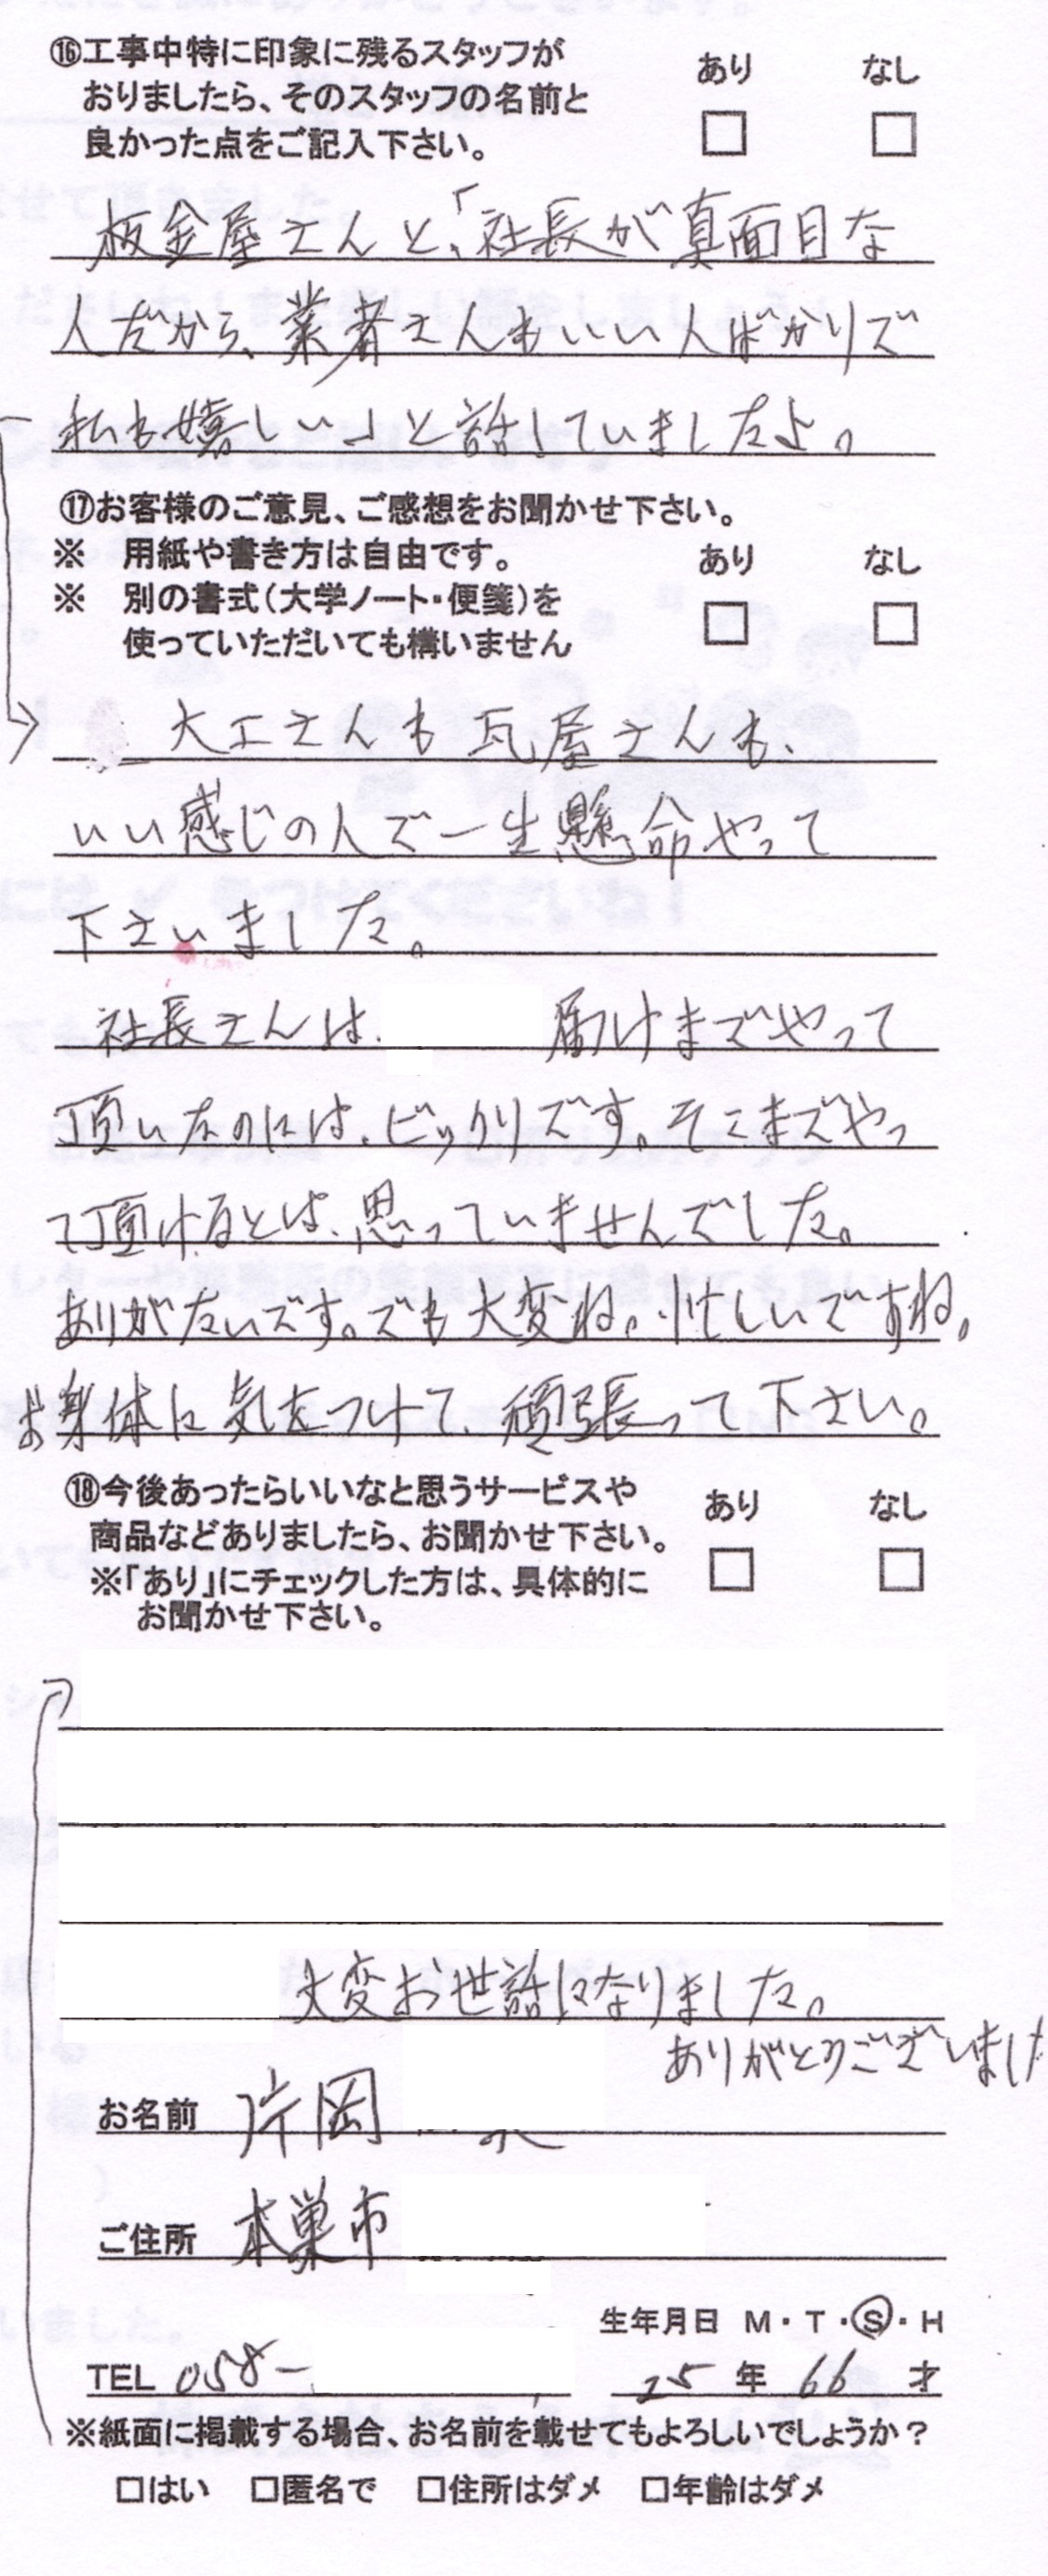 ⑯工事中特に印象に残るスタッフが
おりましたら、そのスタッフの名前と
良かった点をご記入下さい。
あり なし
□ □
板金屋さんと、「社長が真面目な
人だから、業者さんもいい人ばかりで
私も嬉しい」と話していましたよ。
⑰お客様のご意見、ご感想をお聞かせ下さい。
※ 用紙や書き方は自由です。
※ 別の書式(大学ノート・便箋)を
使っていただいても構いません
あり なし
□ □
大工さんも瓦屋さんも、
いい感じの人で一生懸命やって
下さいました。
社長さんは、 届けまでやって
頂いたのには、ビックリです。そこまでやっ
て頂けるとは、思っていませんでした。
ありがたいです。でも大変ね。忙しいですね。
お身体に気をつけて、頑張って下さい。
⑱今後あったらいいなと思うサービスや
商品などありましたら、お聞かせ下さい。
※「あり」にチェックした方は、具体的に
お聞かせ下さい。
あり なし
□ □
大変お世話になりました。
ありがとうございました
お名前 片岡
ご住所 本巣市
生年月日 M・T・Ⓢ・H
TEL 058-
25年 66才
※紙面に掲載する場合、お名前を載せてもよろしいでしょうか？
□はい □匿名で □住所はダメ □年齢はダメ